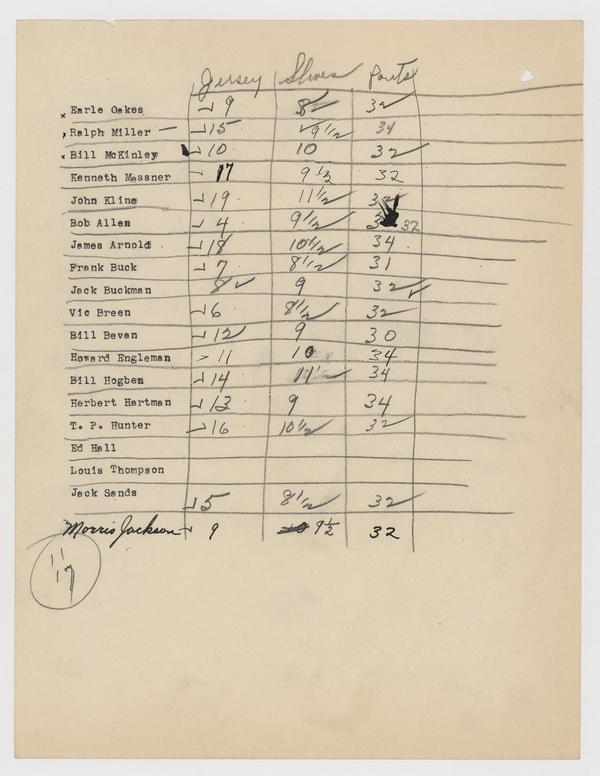 Jersey Shoes Pants
x Earle Oakes 9 8 32
Ralph Miller — 15 9 1/2 34
x Bill McKinley 10 10 32
Kenneth Messner 17 9 1/2 32
John Kline 19 11 1/2
Bob Allen 4 9 1/2 32
James Arnold 18 10 1/2 34
Frank Buck 7 8 1/2 31
Jack Buckman 8 9 32
Vic Breen 6 8 1/2 32
Bill Bevan 12 9 30
Howard Engleman 11 10 34
Bill Hogben 14 11 34
Herbert Hartman 13 9 34
T. P. Hunter 16 10 1/2 32
Ed Hall
Louis Thompson
Jack Sands 5 8 1/2 32
Morris Jackson 9 9 1/2 32
11
17